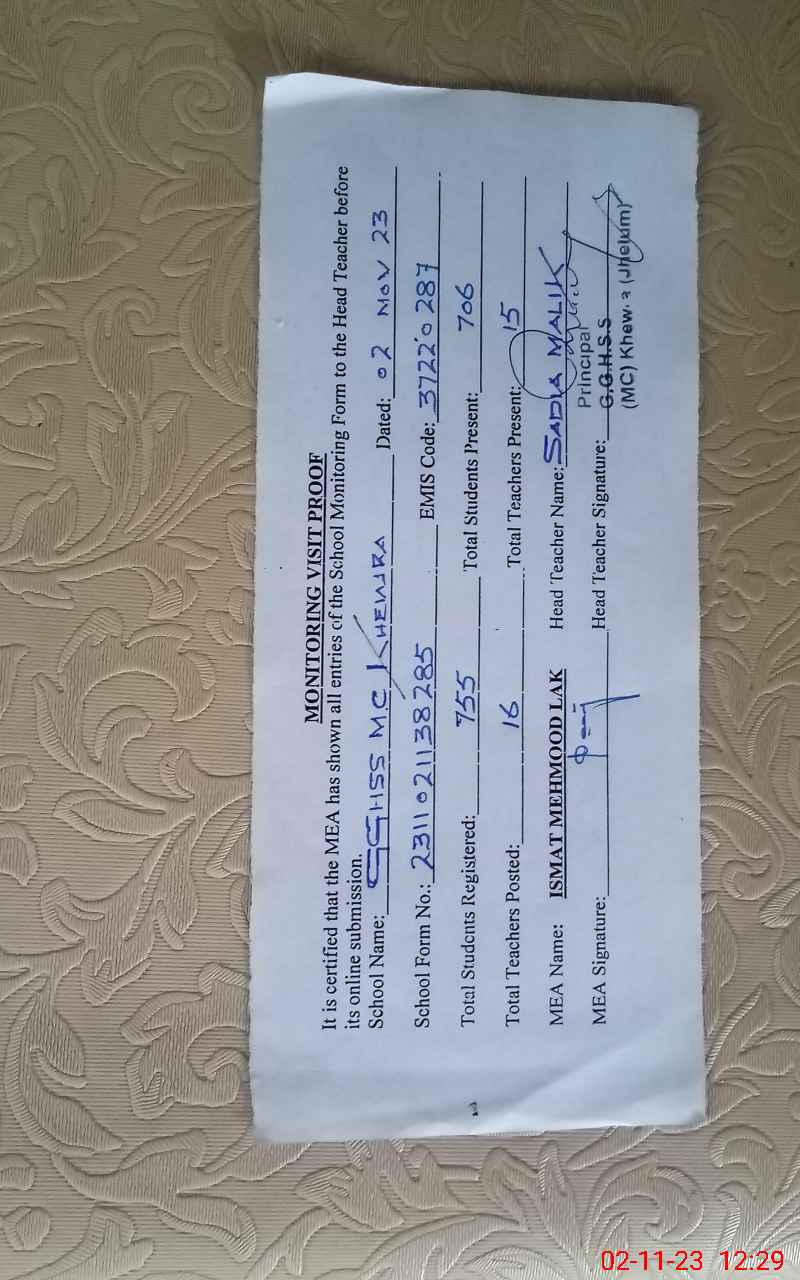 MONITORING VISIT PROOF
It is certified that the MEA has shown all entries of the School Monitoring Form to the Head Teacher before
its online submission.
School Name: GGHSS MC KHEWRA Dated: 02 NOV 23
School Form No.: 231102113 8285 EMIS Code: 37220287
Total Students Registered: 755 Total Students Present: 706
Total Teachers Posted: 16 Total Teachers Present: 15
MEA Name: ISMAT MEHMOOD LAK Head Teacher Name: SADIA MALIK
MEA Signature: Head Teacher Signature:
Principal
G.G.H.S.S
(MC) Khewra (Jhelum)
02-11-23 12:29